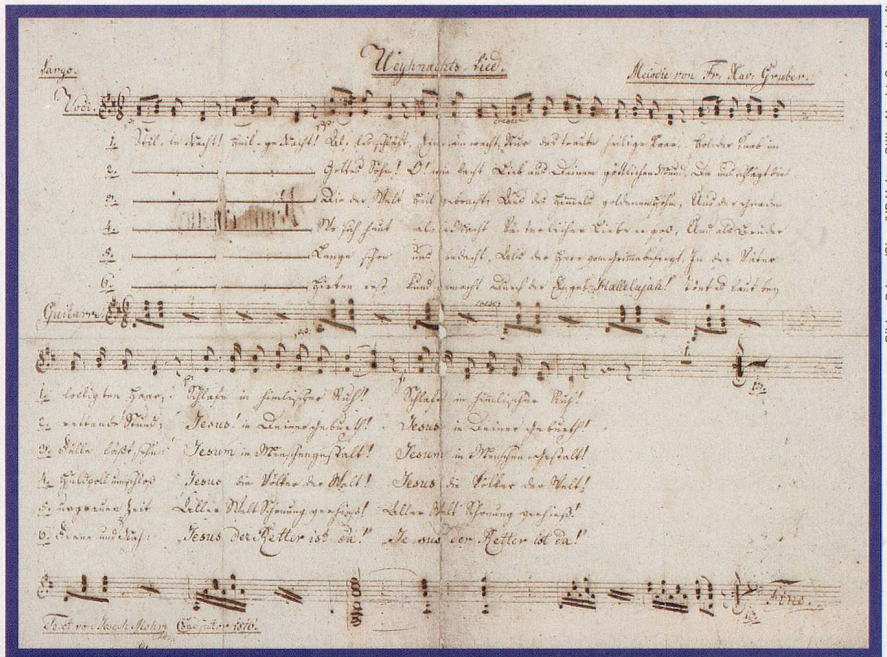 Weyhnachts-Lied.
Largo. Melodie von Fr. Xav: Gruber.
Voci.
1. Stil-le Nacht! Heil-ge Nacht! Al-les schläft, Einsam wacht, Nur das traute heilige Paar, holder Knab im
2. Gottes Sohn! O! wie lacht Lieb aus Deinem göttlichen Mund, Da uns schlägt die
3. Die der Welt Heil gebracht; Aus des Himmels goldenen Höhn, Uns der Gnaden
4. Wo sich heut alle Macht Väterlicher Liebe ergoß, Und als Bruder
5. Lange schon uns bedacht, Als der Herr vom Grimme befreyt, In der Väter
6. Hirten erst kund gemacht Durch der Engel Hallelujah! tönt es laut bey
Guitarre.
1. lockigten Haar; Schlafe in himlischer Ruh! Schlafe in himmlischer Ruh!
2. rettende Stund; Jesus! in Deiner Geburth! Jesus in Deiner Geburth!
3. Fülle läßt sehn: Jesum in Menschengestalt! Jesum in Menschengestalt!
4. Huldvoll umschlos Jesus die Völker der Welt! Jesus die Völker der Welt!
5. urgrauer Zeit Aller Welt Schonung verhieß! Aller Welt Schonung verhieß!
6. Ferne und Nah: Jesus der Retter ist da! Jesus der Retter ist da!
Fine.
Text von Joseph Mohr Coadjutor 1816.